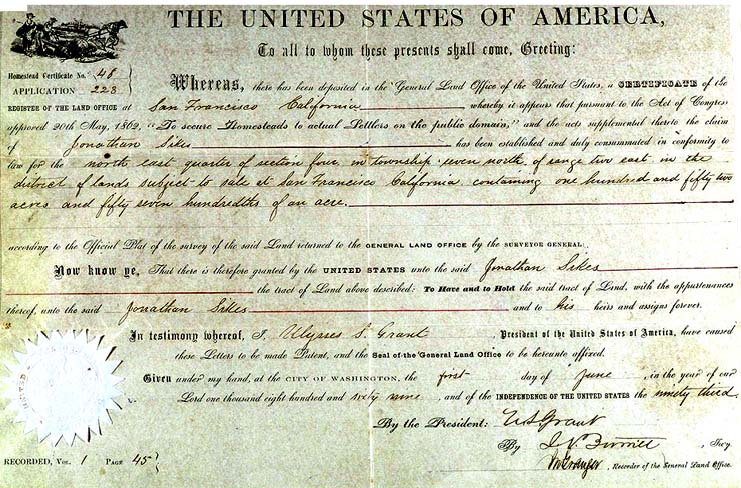 THE UNITED STATES OF AMERICA,
To all to whom these presents shall come, Greeting:
Homestead Certificate No. 48
APPLICATION 223
Whereas, there has been deposited in the General Land Office of the United States, a CERTIFICATE of the
REGISTER OF THE LAND OFFICE at San Francisco California whereby it appears that pursuant to the Act of Congress
approved 20th May, 1862, "To secure Homesteads to actual Settlers on the public domain," and the acts supplemental thereto the claim
of Jonathan Sikes has been established and duly consummated in conformity to
law for the north east quarter of section four in township seven north of range two east in the
district of lands subject to sale at San Francisco California containing one hundred and fifty two
acres and fifty seven hundredths of an acre.
according to the Official Plat of the survey of the said Land returned to the GENERAL LAND OFFICE by the SURVEYOR GENERAL.
Now know ye, That there is therefore granted by the UNITED STATES unto the said Jonathan Sikes
the tract of Land above described: To Have and to Hold the said tract of Land, with the appurtenances
thereof, unto the said Jonathan Sikes and to his heirs and assigns forever.
In testimony whereof, I, Ulysses S. Grant, President of the United States of America, have caused
these Letters to be made Patent, and the Seal of the General Land Office to be hereunto affixed.
Given under my hand, at the CITY OF WASHINGTON, the first day of June, in the year of our
Lord one thousand eight hundred and sixty nine, and of the INDEPENDENCE OF THE UNITED STATES the ninety third.
By the President: U S Grant
By Secy.
RECORDED, Vol. 1 PAGE 45 Granger, Recorder of the General Land Office.